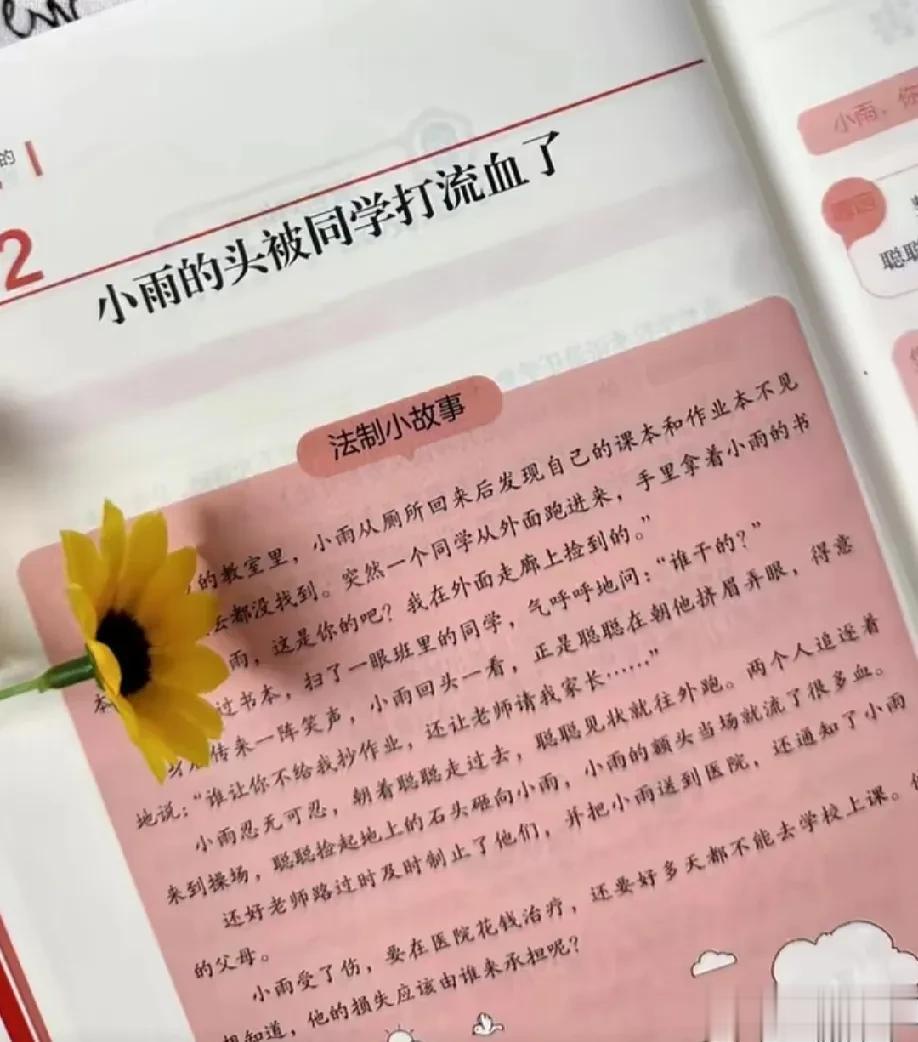 的
2
小雨的头被同学打流血了
法制小故事
的教室里，小雨从厕所回来后发现自己的课本和作业本不见
都没找到。突然一个同学从外面跑进来，手里拿着小雨的书
雨，这是你的吧？我在外面走廊上捡到的。”
过书本，扫了一眼班里的同学，气呼呼地问：“谁干的？”
传来一阵笑声，小雨回头一看，正是聪聪在朝他挤眉弄眼，得意
地说：“谁让你不给我抄作业，还让老师请我家长……”
小雨忍无可忍，朝着聪聪走过去，聪聪见状就往外跑。两个人追逐着
来到操场，聪聪捡起地上的石头砸向小雨，小雨的额头当场就流了很多血。
还好老师路过时及时制止了他们，并把小雨送到医院，还通知了小雨
的父母。
小雨受了伤，要在医院花钱治疗，还要好多天都不能去学校上课。
想知道，他的损失应该由谁来承担呢？
小雨，你
聪聪